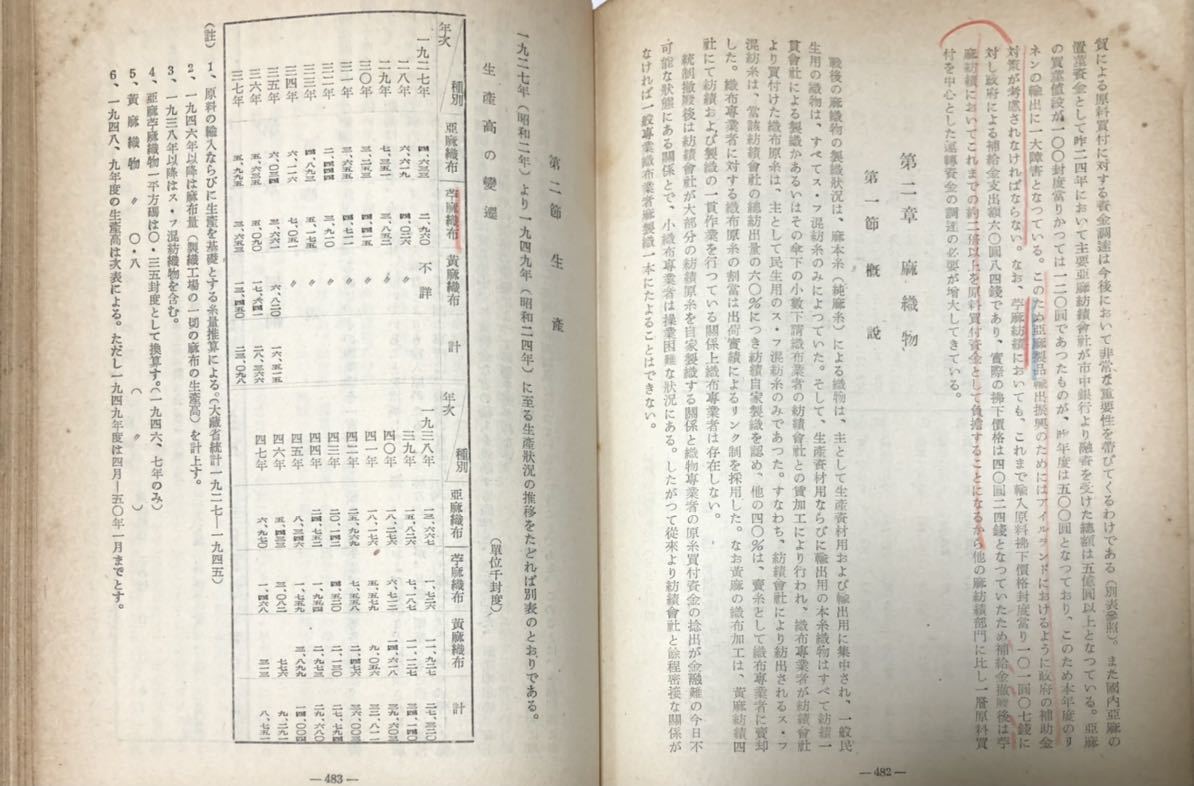 貨による原料買付に対する資金調達は今後において非常な重要性を帯びてくるわけである(別表參照)。また國内亞麻の
置葉資金として昨二四年において主要亞麻紡績會社が市中銀行より融資を受けた總額は五億圓以上となつている。亞麻
の買葉値段が一〇〇封度當りかつては一二〇圓であつたものが、昨年度は五〇〇圓となつており、このため本年度のリ
ネンの輸出に一大障害となつている。このため亞麻製品輸出振興のためにはアイルランドにおけるように政府の補助金
対策が考慮されなければならない。なお、苧麻紡績においても、これまで輸入原料拂下價格封度當り一〇一圓〇七錢に
対し政府による補給金支出額六〇圓八四錢であり、實際の拂下價格は四〇圓二四錢となつていたため補給金撤廢後は苧
麻紡績においてこれまでの約二倍以上を原料買付資金として負擔することになるから他の麻紡績部門に比し一層原料買
付を中心とした運轉資金の調達の必要が増大してきている。
第二章 麻織物
第一節 概説
戰後の麻織物の製織狀況は、麻本糸(純麻糸)による織物は、主として生産資材用および輸出用に集中され、一般民
生用の織物は、すべてス・フ混紡糸のみによつていた。そして、生産資材用ならびに輸出用の本糸織物はすべて紡績一
貫會社による製織かあるいはその傘下の小數下請織布業者の紡績會社との賃加工により行われ、織布專業者が紡績會社
より買付けた織布原糸は、主として民生用のス・フ混紡糸のみであつた。すなわち、紡績會社により紡出されるス・フ
混紡糸は、當該紡績會社の總紡出量の六〇%につき紡績自家製織を認め、他の四〇%は、賣糸として織布專業者に賣却
した。織布專業者に対する織布原糸の割當は出荷實績によるリンク制を採用した。なお黃麻の織布加工は、黃麻紡績四
社にて紡績および製織の一貫作業を行つている關係上織布專業者は存在しない。
統制撤廢後は紡績會社が大部分の紡績原糸を自家製織する關係と織物專業者の原糸買付資金の捻出が金融難の今日不
可能な狀態にある關係とで、小織布專業者は操業困難な狀況にある。したがつて從來より紡績會社と餘程密接な關係が
なければ一般專業織布業者麻製織一本にたよることはできない。
—482—
第二節 生産
一九二七年(昭和二年)より一九四九年(昭和二四年)に至る生産狀況の推移をたどれば別表のとおりである。
生産高の變遷
(單位千封度)
年次 種別 亞麻織布 苧麻織布 黃麻織布 計
一九二七年 四、六三三 二、九六〇 不詳
二八年 六、六二九 四、〇三六 〃
二九年 七、三五一 三、八五二 〃
三〇年 三、五二三 四、四四一 〃
三一年 三、六五三 四、七一一 〃
三二年 二、四四四 三、九一〇 〃
三三年 四、八九三 五、一七五 〃
三四年 六、二一六 七、〇五一 〃
三五年 六、〇三四 三、六六一 六、八二〇 一六、五一五
三六年 五、六一五 五、〇九〇 一七、六六一 二八、三六六
三七年 五、九九五 三、六五三 一三、四五〇 二三、〇九八
年次 種別 亞麻織布 苧麻織布 黃麻織布 計
一九三八年 一三、六六七 一、七二六 一一、九二七 二七、三二〇
三九年 一五、八二六 七、一八七 一一、一二七 三四、一四〇
四〇年 一八、二七六 六、六七二 一四、六二八 三九、六〇三
四一年 一八、一二七 五、五七九 九、〇五六 三二、八八一
四二年 二五、九六九 七、五五八 二、四七六 三六、〇〇三
四三年 二〇、一四二 四、五二〇 二、一三〇 二七、七九四
四四年 二四、四五二 一、九五四 二、九七三 二九、六八〇
四五年 八、三四六 一、七五九 三、八九九 一四、〇〇四
四六年 五、四三三 三、〇八二 七七六 九、二九一
四七年 六、九七〇 一、四六八 三一三 八、七五一
(註) 1、原料の輸入ならびに生産を基礎とする糸量推算による。(大藏省統計一九二七—一九四五)
2、一九四六年以降は麻布量(製織工場の一切の麻布の生産高)を計上す。
3、一九三八年以降はス・フ混紡織物を含む。
4、亞麻苧麻織物一平方碼は〇・三五封度として換算す。(一九四六、七年のみ)
5、黃麻織物 〃 〇・八 ( 〃 )
6、一九四八、九年度の生産高は次表による。ただし一九四九年度は四月—五〇年一月までとす。
—483—